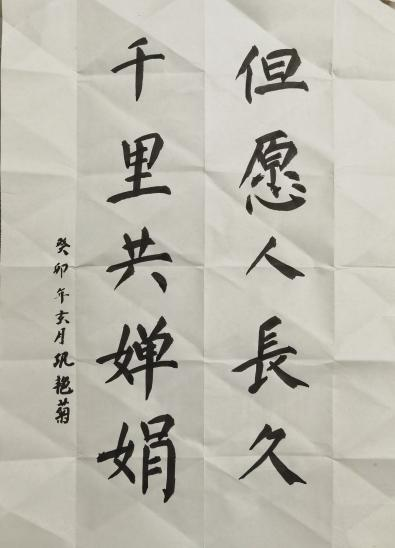 但愿人長久
千里共婵娟
癸卯年亥月巩艳菊